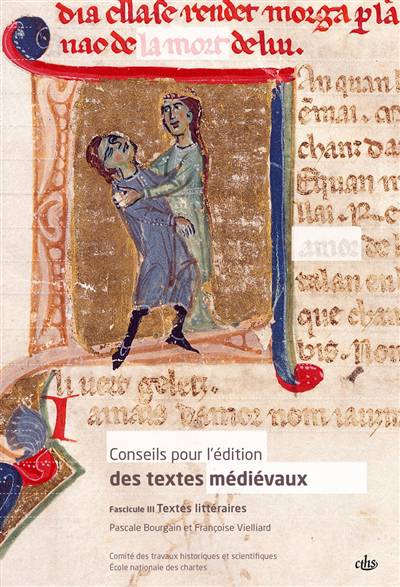 dia ellase rendet morga p la
nao de la mort de lui.
An quan l
chanz da
Equan m
amor de l
talan en
que chan
bis. Non
Iamais damor nom iau
Conseils pour l'édition
des textes médiévaux
Fascicule III Textes littéraires
Pascale Bourgain et Françoise Vielliard
Comité des travaux historiques et scientifiques
École nationale des chartes
cths